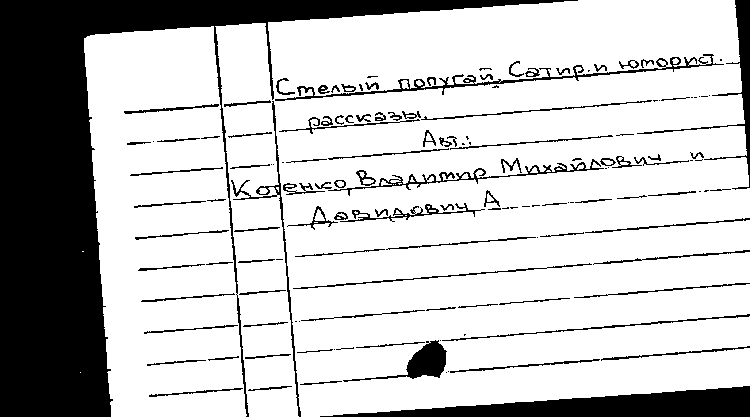 Смелый попугай. Сатир. и юморист.
рассказы.
Авт.:
Котенко, Владимир Михайлович и
Давидович, А